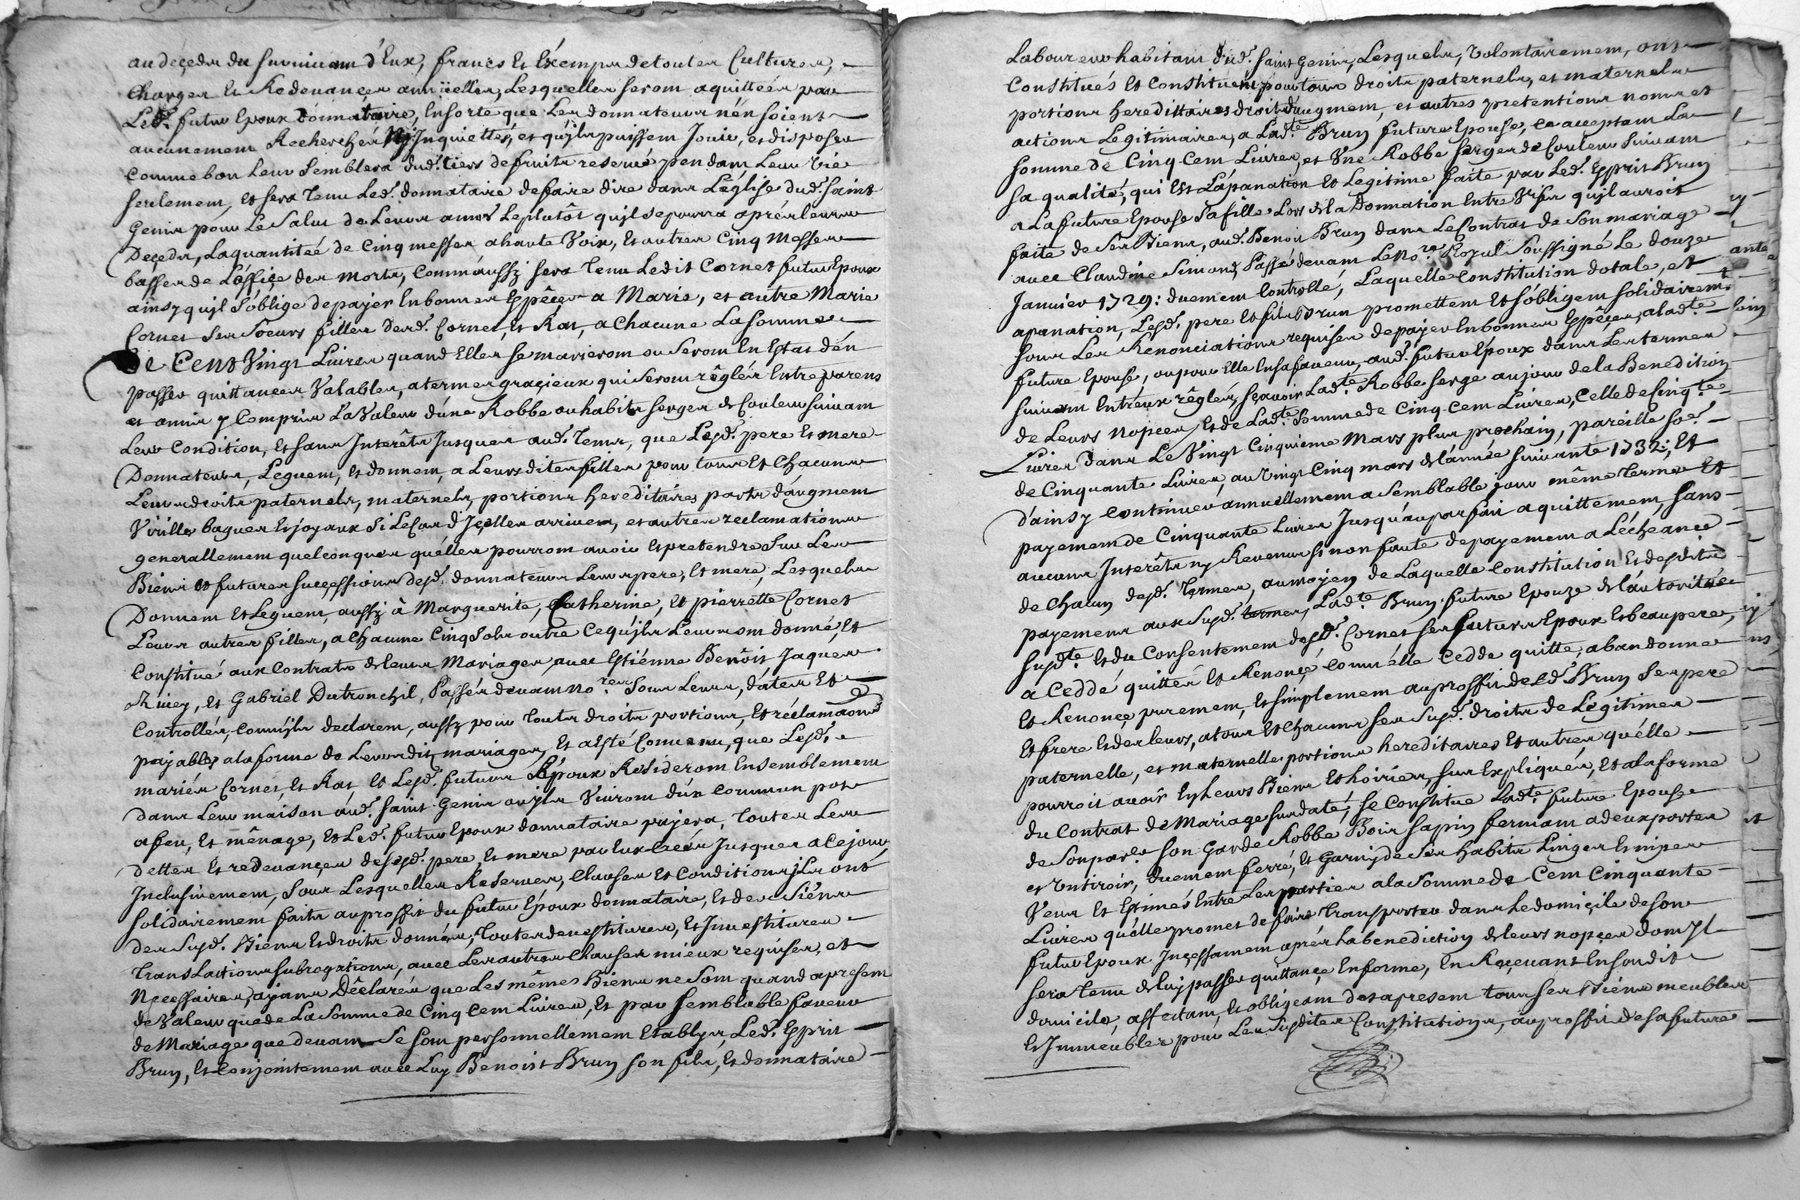 au deçeds du survivant d'Eux, francs Et Exempts de toutes Cultures,
Charges Et Redevances annuelles, Lesquelles seront aquittées par
Led. futur Epoux Donnataire, Ensorte que Les donnateurs n'en soient
aucunement Recherchés Ny Inquiettés, et qu'jls puissent Jouir, et disposer
comme bon Leur Semblera dud. tiers de fruits reservé pendant Leur Vie
seulement, et sera Tenu Led. donnataire de faire dire dans L'église dud. Saint
Genis pour Le Salut de Leurs ames Leplutôt qu'jl se pourra aprés leurs
Deçeds, La quantitée de Cinq messes a haute Voix, Et autres Cinq Messes
basses de L'office des Morts, Comm'aussy sera Tenu Ledit Cornet futur Epoux
ainsy qu'jl S'oblige de payer En bonnes Espêces a Marie, et autre Marie
Cornet Ses Soeurs filles desd. Cornet, Et Rat, a Chacune La Somme
de Cent Vingt Livres quand Elles se marieront ou Seront En Estat d'en
passer quittances Valables, a termes gracieux qui Seront rêglés Entre parens
et amis y Compris La Valeur d'une Robbe ou habits serges de Couleur suivant
Leur Condition, Et sans Interêts Jusques aud. Tems, que Lesd. pere Et mere
Donnateurs, Leguent, Et donnent, a Leursdites filles pour tous Et Chacuns
Leurs droits paternels, maternels, portions hereditaires parts d'augment
Virilles bagues Et joyaux Si Le Cas d'Jcelles arrivent, et autres reclamations
generallement quelconques qu'elles pourront avoir Et pretendre Sur Les
Biens Et futures successions desd. donnateurs Leurs pere, Et mere, Lesquels
Donnent Et Leguent, aussy à Marguerite, Catherine, Et pierrette Cornet
Leurs autres filles, a Chacune Cinq Sols outre Ce qu'jls Leurs ont donné, Et
Constitué aux Contrats de Leurs Mariages, avec Estiénne Benôis Jaques
, Et Gabriel Dutronchil, Passés devant no.res Sous Leurs, dates Et
Controllés, Comm'jls declarent, aussy pour Touts droits portions, Et réclamaons
payables a la forme de Leursdits mariages, Et a Esté Convenu, que Lesd.
mariés Cornet, Et Rat, Et Lesd. futurs Epoux Resideront Ensemblement
dans Leur maison aud. Saint Genis ou jls Vivront d'un Commun pot
a feu, Et mênage, Et Led. futur Epoux donnataire payera, toutes Les
dettes Et redevances desd. pere, Et mere par Eux Creés Jusques a Ce jour
Inclusivement, Sous Lesquelles Reserves, Clauses Et Conditions jls ont
solidairement faits au proffit du futur Epoux donnataire, Et des Siéns
des Susd. Biens Et droits donnés, toutes devestitures, Et Investitures
Translations subrogations, avec Les autres Clauses mieux requises, et
Neçessaires, ayant Dêclarés que Les mêmes Biens ne sont quand a present
de Valeur que de La Somme de Cinq Cent Livres, Et par semblable faveur
de Mariage que devant Se sont personnellement Etablys, Led. Esprit
Brun, Et Conjointement avec Luy Benoist Brun son fils, Et donnataire
Laboureur habitant dud. Saint Genis, Lesquels, Volontairement, ont
Constitués Et Constituent pour tous droits paternels, et maternels
portions heredittaires droits d'augment, et autres pretentions noms et
actions Legitimaires, a Lad.te Brun future Epouse, Ce acceptant La
somme de Cinq Cent Livres, et Une Robbe serge de Couleur Suivant
Sa qualité, qui Est L'apanation Et Legitime faite par Led. Esprit Brun
a La future Epouse Sa fille Lors de la Donnation Entre Vifs qu'jl auroit
faite de Ses Biens, aud. Benoit Brun dans Le Contrat de Son mariage
avec Claudine Simond Passé devant Le No.re Royal Soussigné Le douze
Janvier 1729: duement Controllé, Laquelle Constitution dotale, et
apanation, Lesd. pere Et fils Brun promettent Et s'obligent solidairemt
sous Les Renonciations requises de payer En bonnes Espêces, a lad.te
future Epouse, ou pour Elle En sa faveur, aud. futur Epoux dans Les termes
suivans Entreux rêglés, Sçavoir Lad.te Robbe serge au jour de la Benediction
de Leurs Nopces, Et de Lad.te Somme de Cinq Cent Livres, Celle de Cinq.te
Livres dans Le Vingt Cinquiéme Mars plus prochain, pareille So.e
de Cinquante Livres, au Vingt Cinq mars de L'année suivante 1732; Et
d'ainsy continuer annuellement a semblable jour même Terme Et
payement de Cinquante Livres Jusqu'au parfait aquittement, sans
aucuns Interêts ny Revenus sinon faute de payement a L'échéance
de Chacun desd. Termes, au moyen de Laquelle Constitution Et desdits
payemens aux Susd. termes, Lad.te Brun future Epouze de L'autorité
Susd.te Et du Consentement desd. Cornet ses futurs Epoux Et beaupere,
a Ceddé quitté Et Renonçé comm'elle Cedde quitte, abandonne
Et Renonçe purement, Et simplement au proffit desd. Brun Ses pere
Et frere Et des leurs, a tous Et Chacuns ses Susd. droits de Legitimes
paternelle, et maternelle portions hereditaires Et autres qu'elle
pourroit avoir Es leurs Biens Et hoiries, sus Expliqués, Et a la forme
du Contrat de Mariage susdaté, se Constitue Lad.te future Epouse
de Son par.er Son Garde Robbe Bois sapin fermant a deux portes
et Un tiroir, duement ferré, Et Garny de Ses habits Linges
Veus Et Estimés Entre Les parties a la Somme de Cent Cinquante
Livres qu'elle promet de faire Transporter dans Le domicile de son
futur Epoux Inçessament aprés la benediction de Leurs nopçes dont Jl
sera Tenu de luy passer quittance En forme, En Reçevant En sondit
domicile, affectant, Et obligeant des a present tous ses Biens meubles
Et Immeubles pour Les susdites Constitutions, au proffit de sa future